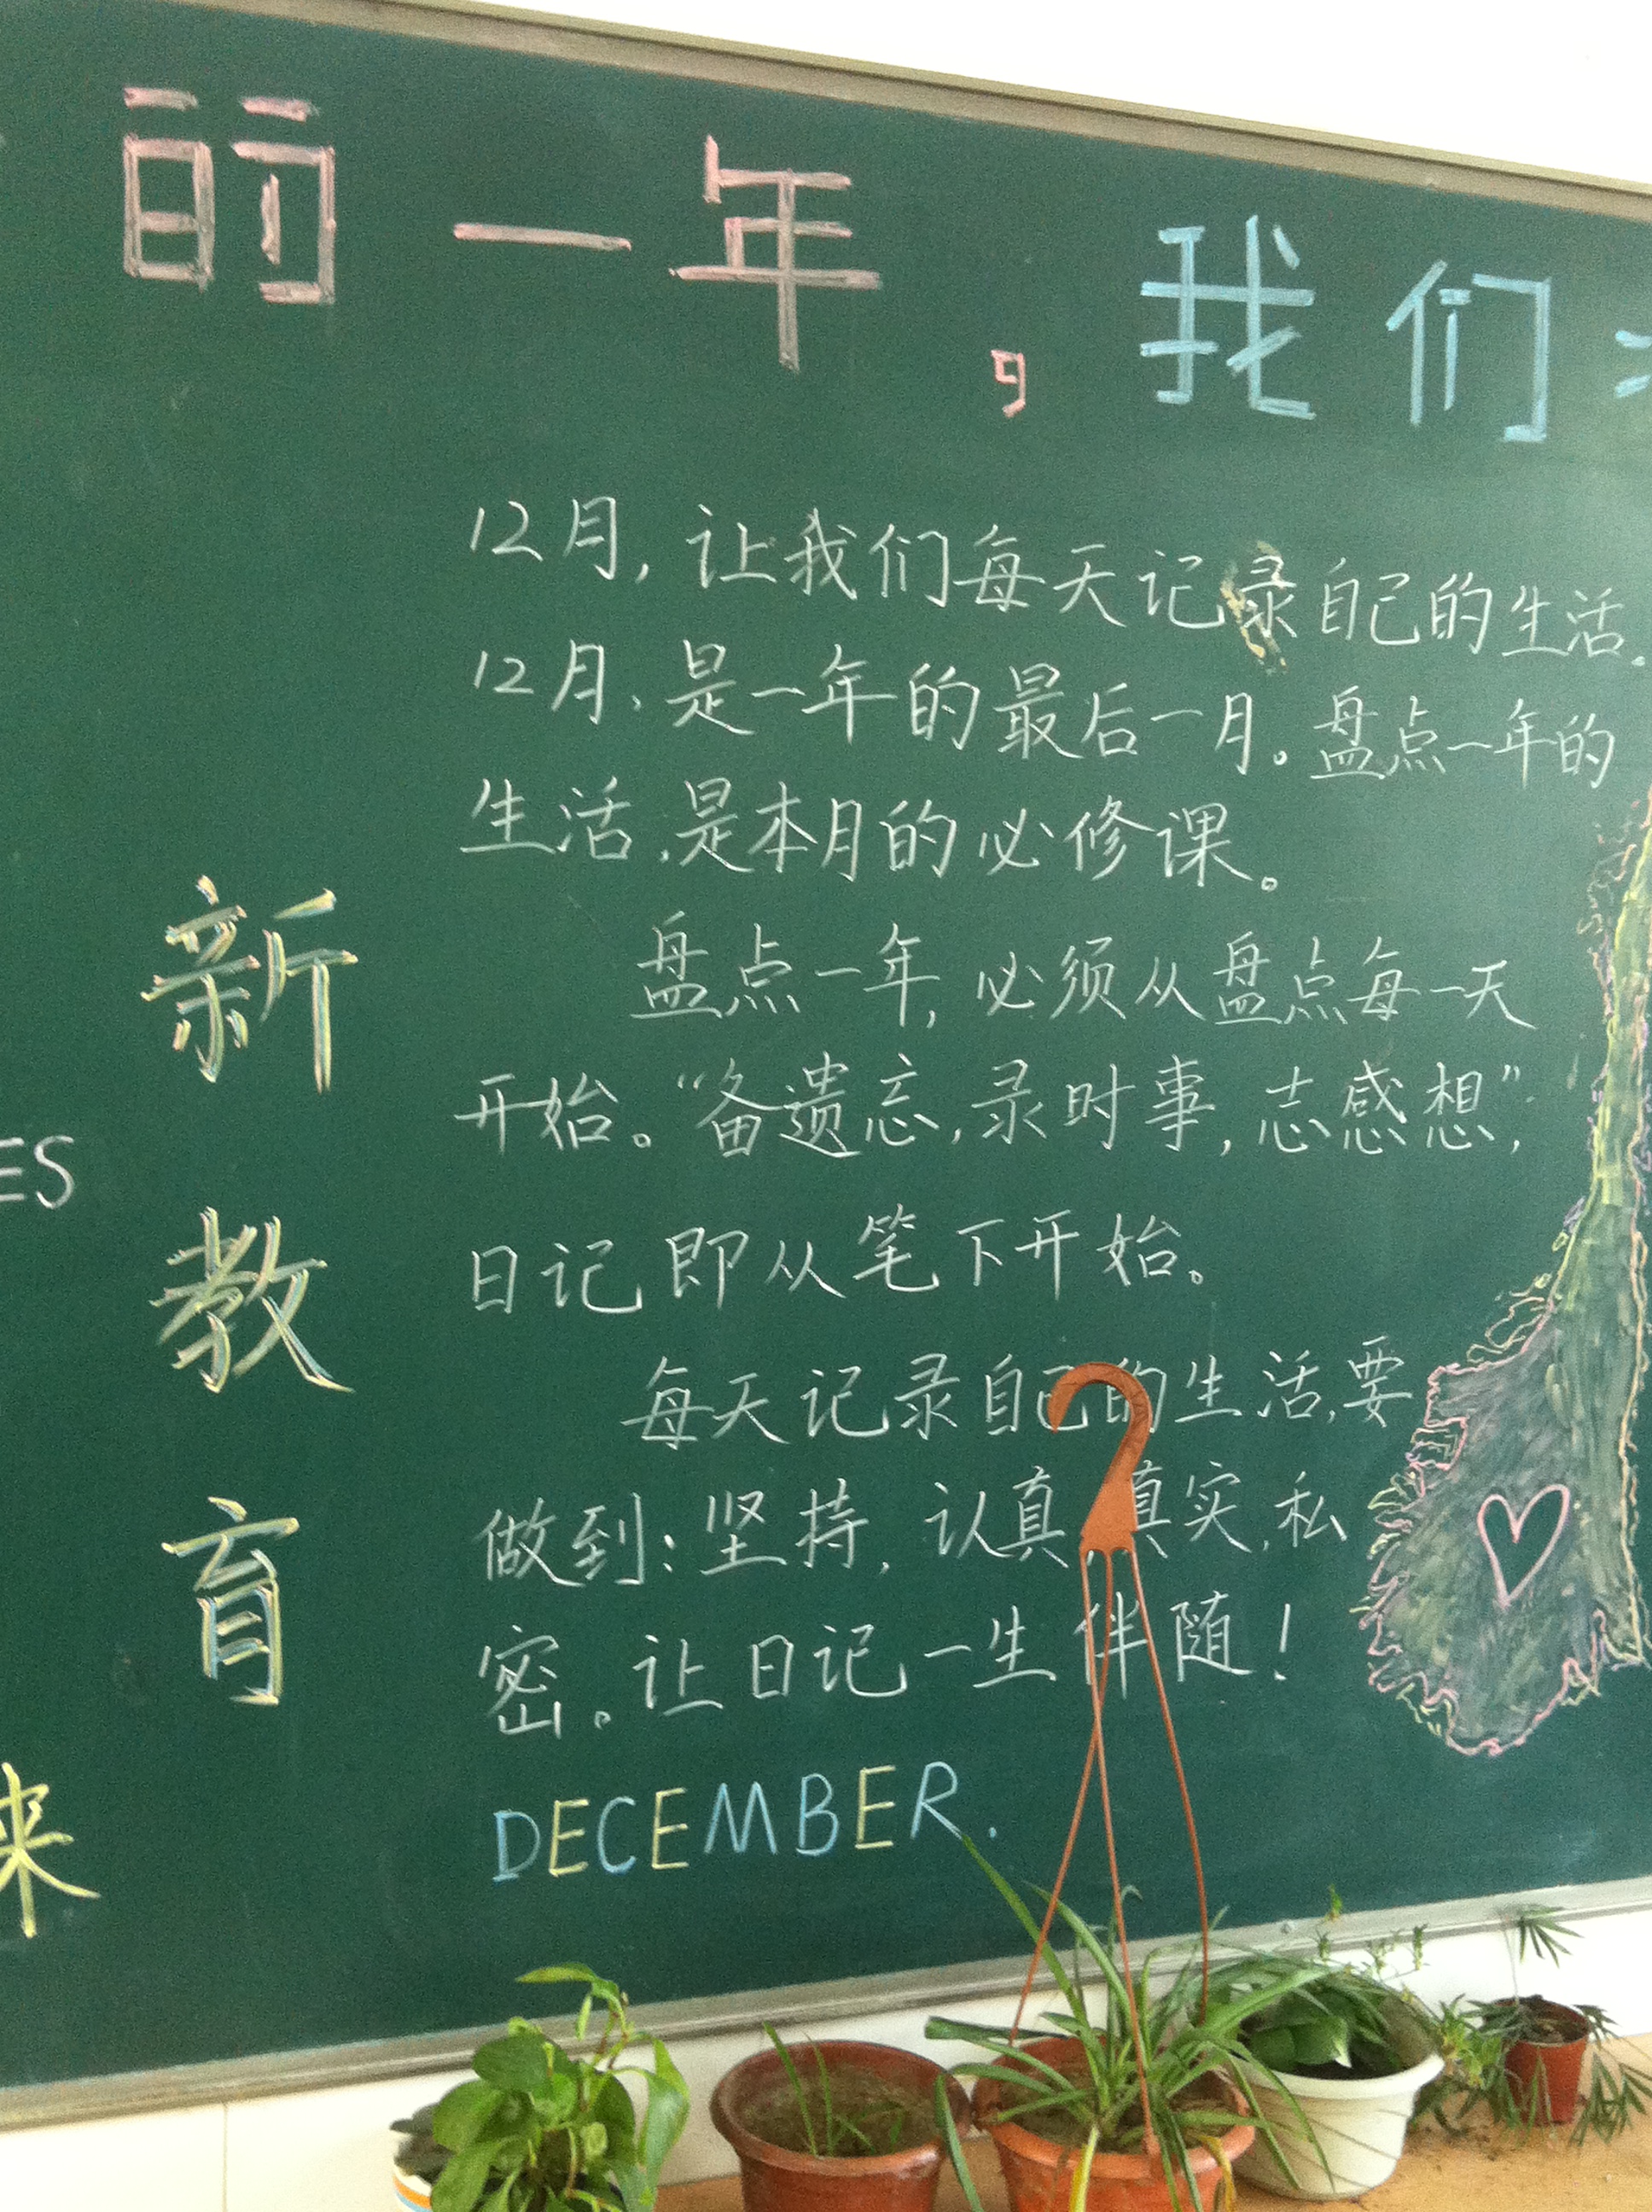 的一年，我们
12月，让我们每天记录自己的生活.
12月、是一年的最后一月。盘点一年的
生活,是本月的必修课。
盘点一年,必须从盘点每一天
开始。“备遗忘,录时事,志感想”,
日记即从笔下开始。
每天记录自己的生活,要
做到:坚持,认真 真实,私
密。让日记一生伴随!
DECEMBER.
新
教
育
ES
来